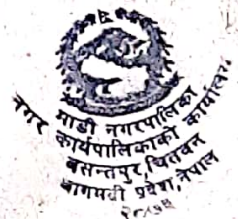 माडी नगरपालिका
नगर कार्यपालिकाको कार्यालय,
बसन्तपुर, चितवन
बागमती प्रदेश, नेपाल